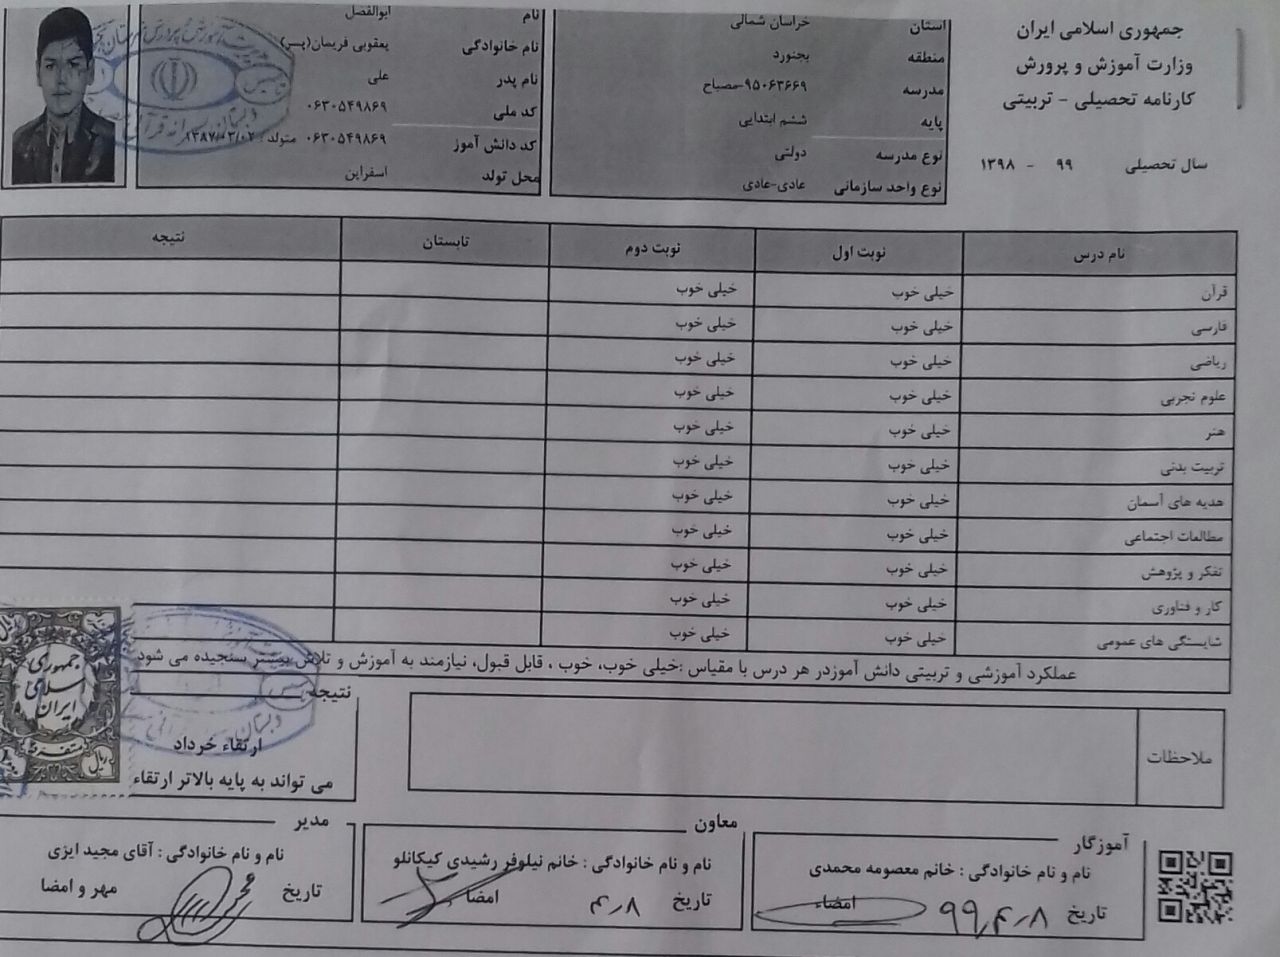 جمهوری اسلامی ایران
وزارت آموزش و پرورش
کارنامه تحصیلی - تربیتی
سال تحصیلی ۹۹ - ۱۳۹۸
استان خراسان شمالی
منطقه بجنورد
مدرسه ۹۵۰۶۳۶۶۹-مصباح
پایه ششم ابتدایی
نوع مدرسه دولتی
نوع واحد سازمانی عادی-عادی
نام ابوالفضل
نام خانوادگی یعقوبی فریمان(پسر)
نام پدر علی
کد ملی ۰۶۳۰۵۴۹۸۶۹
کد دانش آموز ۰۶۳۰۵۴۹۸۶۹ متولد : ۱۳۸۷/۰۳/۰۲
محل تولد اسفراین
نام درس نوبت اول نوبت دوم تابستان نتیجه
قرآن خیلی خوب خیلی خوب
فارسی خیلی خوب خیلی خوب
ریاضی خیلی خوب خیلی خوب
علوم تجربی خیلی خوب خیلی خوب
هنر خیلی خوب خیلی خوب
تربیت بدنی خیلی خوب خیلی خوب
هدیه های آسمان خیلی خوب خیلی خوب
مطالعات اجتماعی خیلی خوب خیلی خوب
تفکر و پژوهش خیلی خوب خیلی خوب
کار و فناوری خیلی خوب خیلی خوب
شایستگی های عمومی خیلی خوب خیلی خوب
عملکرد آموزشی و تربیتی دانش آموزدر هر درس با مقیاس :خیلی خوب، خوب ، قابل قبول، نیازمند به آموزش و تلاش بیشتر سنجیده می شود
ملاحظات
نتیجه
ارتقاء خرداد
می تواند به پایه بالاتر ارتقاء
جمهوری
اسلامی
ایران
متفرقه
ریال
آموزگار
نام و نام خانوادگی : خانم معصومه محمدی
تاریخ ۹۹,۴,۸ امضاء
معاون
نام و نام خانوادگی : خانم نیلوفر رشیدی کیکانلو
تاریخ ۴,۸ امضا
مدیر
نام و نام خانوادگی : آقای مجید ایزی
تاریخ مهر و امضا